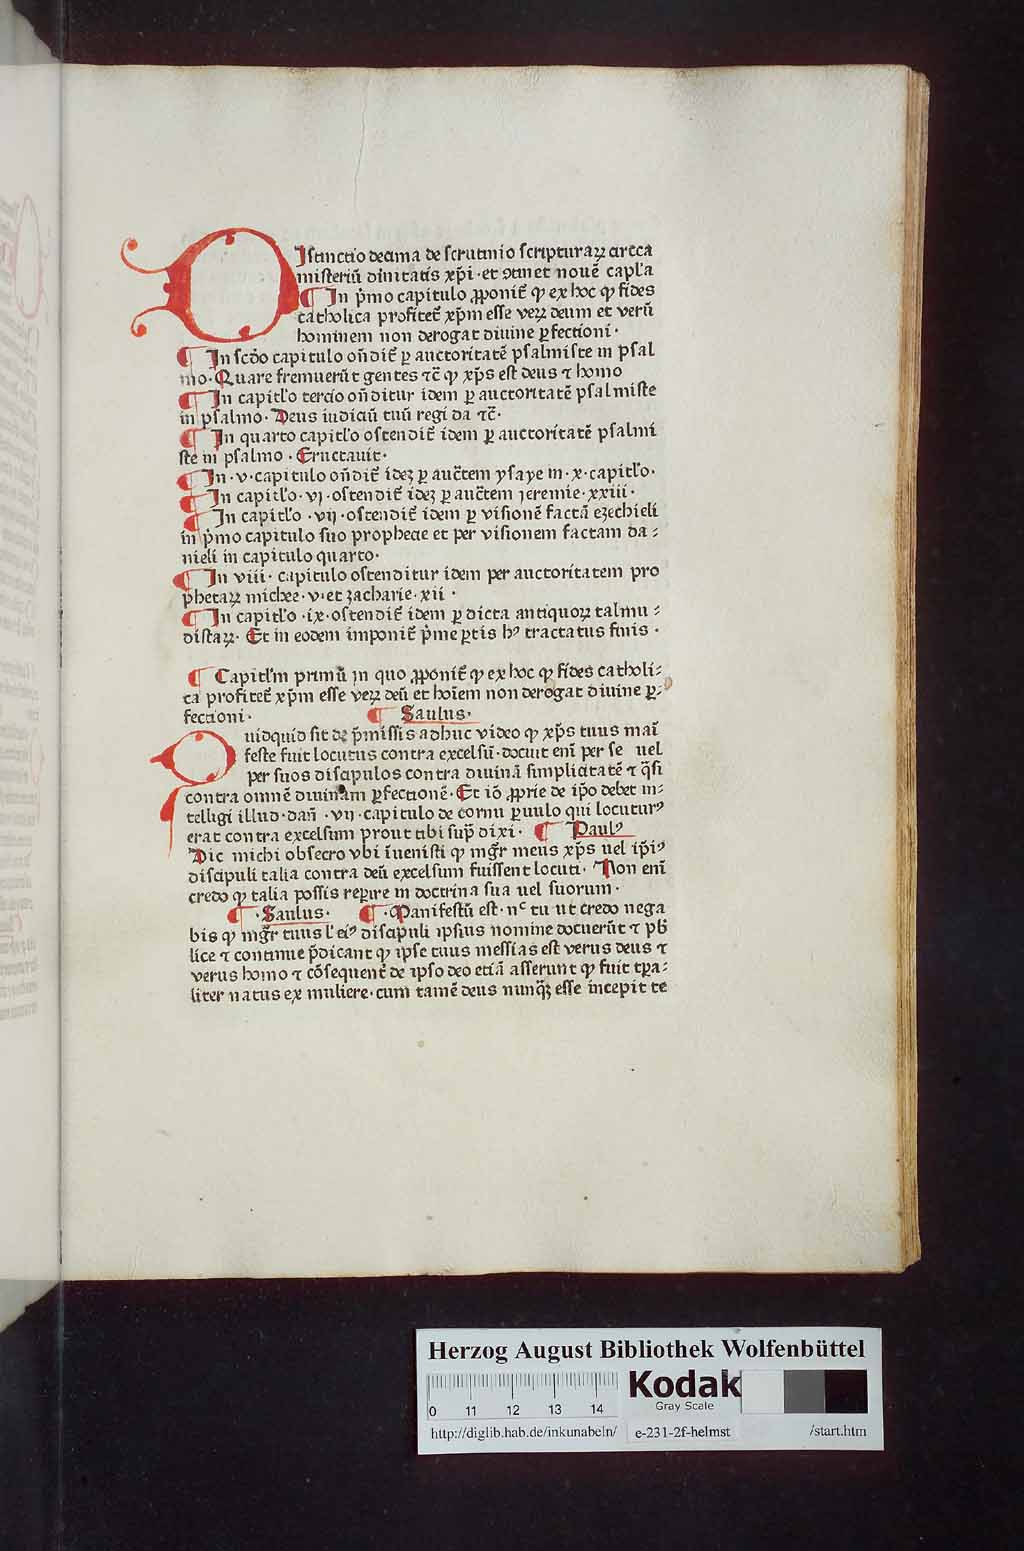 DIstinctio decima de scrutinio scripturaꝝ circa
misteriū diuitatis xp̄i · et ꝯtinet nouē capl'a
¶ In p̄mo capitulo ꝓponit̄ ꝙ ex hoc ꝙ fides
catholica profitet̄ xp̄m esse veꝝ deum et verū
hominem non derogat diuine ꝑfectioni ·
¶ In scd̄o capitulo on̄dit̄ ꝑ auctoritatē psalmiste in psal
mo · Quare fremuerūt gentes ⁊c̄ ꝙ xp̄s est deus ⁊ homo
¶ In capitl'o tercio on̄ditur idem ꝑ auctoritatē psalmiste
in psalmo · Deus iudiciū tuū regi da ⁊c̄ ·
¶ In quarto capitl'o ostendit̄ idem ꝑ auctoritatē psalmi
ste in psalmo · Eructauit ·
¶ In · v · capitulo on̄dit̄ ideȝ ꝑ auc̄tem ysaye in · x · capitl'o ·
¶ In capitl'o · vj · ostendit̄ ideȝ ꝑ auc̄tem jeremie · xxiii ·
¶ In capitl'o · vij · ostendit̄ idem ꝑ visionē factā ezechieli
in p̄mo capitulo suo prophecie et per visionem factam da⸗
nieli in capitulo quarto ·
¶ In viii · capitulo ostenditur idem per auctoritatem pro
phetaꝝ michee · v · et zacharie · xii ·
¶ In capitl'o · ix · ostendit̄ idem ꝑ dicta antiquoꝝ talmu⸗
distaꝝ · Et in eodem imponit̄ p̄me ꝑtis hꝰ tractatus finis ·
¶ Capitl'm primū in quo ꝓponit̄ ꝙ ex hoc ꝙ fides catholi⸗
ca profitet̄ xp̄m esse veꝝ deū et hoīem non derogat diuine ꝑ⸗
fectioni · ¶ Saulus ·
Quidquid sit de p̄missis adhuc video ꝙ xp̄s tuus mai
feste fuit locutus contra excelsū · docuit eni per se uel
per suos discipulos contra diuinā simplicitatē ⁊ q̄si
contra omnē diuinam ꝑfectionē · Et iō ꝓprie de ip̄o debet in⸗
telligi illud · dan̄ · vij · capitulo de cornu ꝑuulo qui locuturꝰ
erat contra excelsum prout tibi sup̄ dixi · ¶ Paulꝰ
Dic michi obsecro vbi īuenisti ꝙ mgr̄ meus xp̄s uel ip̄iꝰ
discipuli talia contra deū excelsum fuissent locuti · Non eni
credo ꝙ talia possis reꝑire in doctrina sua uel suorum ·
¶ · Saulus · ¶ · Manifestū est · nᶜ tu ut credo nega
bis ꝙ mgr̄ tuus l' eiꝰ discipuli ipsius nomine docuerūt ⁊ pb
lice ⁊ continue p̄dicant ꝙ ipse tuus messias est verus deus ⁊
verus homo ⁊ cōsequent̄ de ipso deo etiā asserunt ꝙ fuit tp̄a⸗
liter natus ex muliere · cum tamē deus nunq̄ȝ esse incepit te
Herzog August Bibliothek Wolfenbüttel
0 11 12 13 14
Kodak
Gray Scale
http://diglib.hab.de/inkunabeln/ e-231-2f-helmst /start.htm